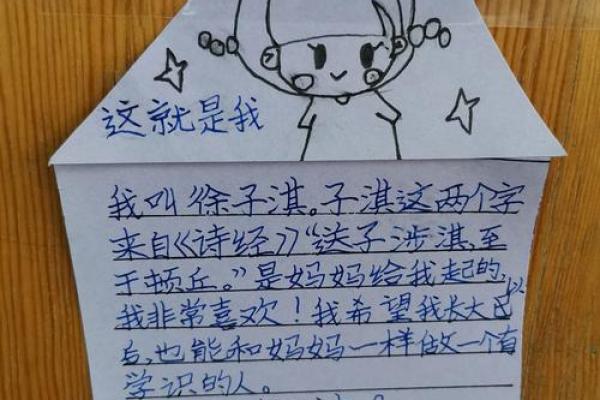 这就是我
我叫徐子淇。子淇这两个字
来自《诗经》“送子涉淇,至
于顿丘。”是妈妈给我起的,
我非常喜欢！我希望我长大以
后,也能和妈妈一样做一个有
学识的人。